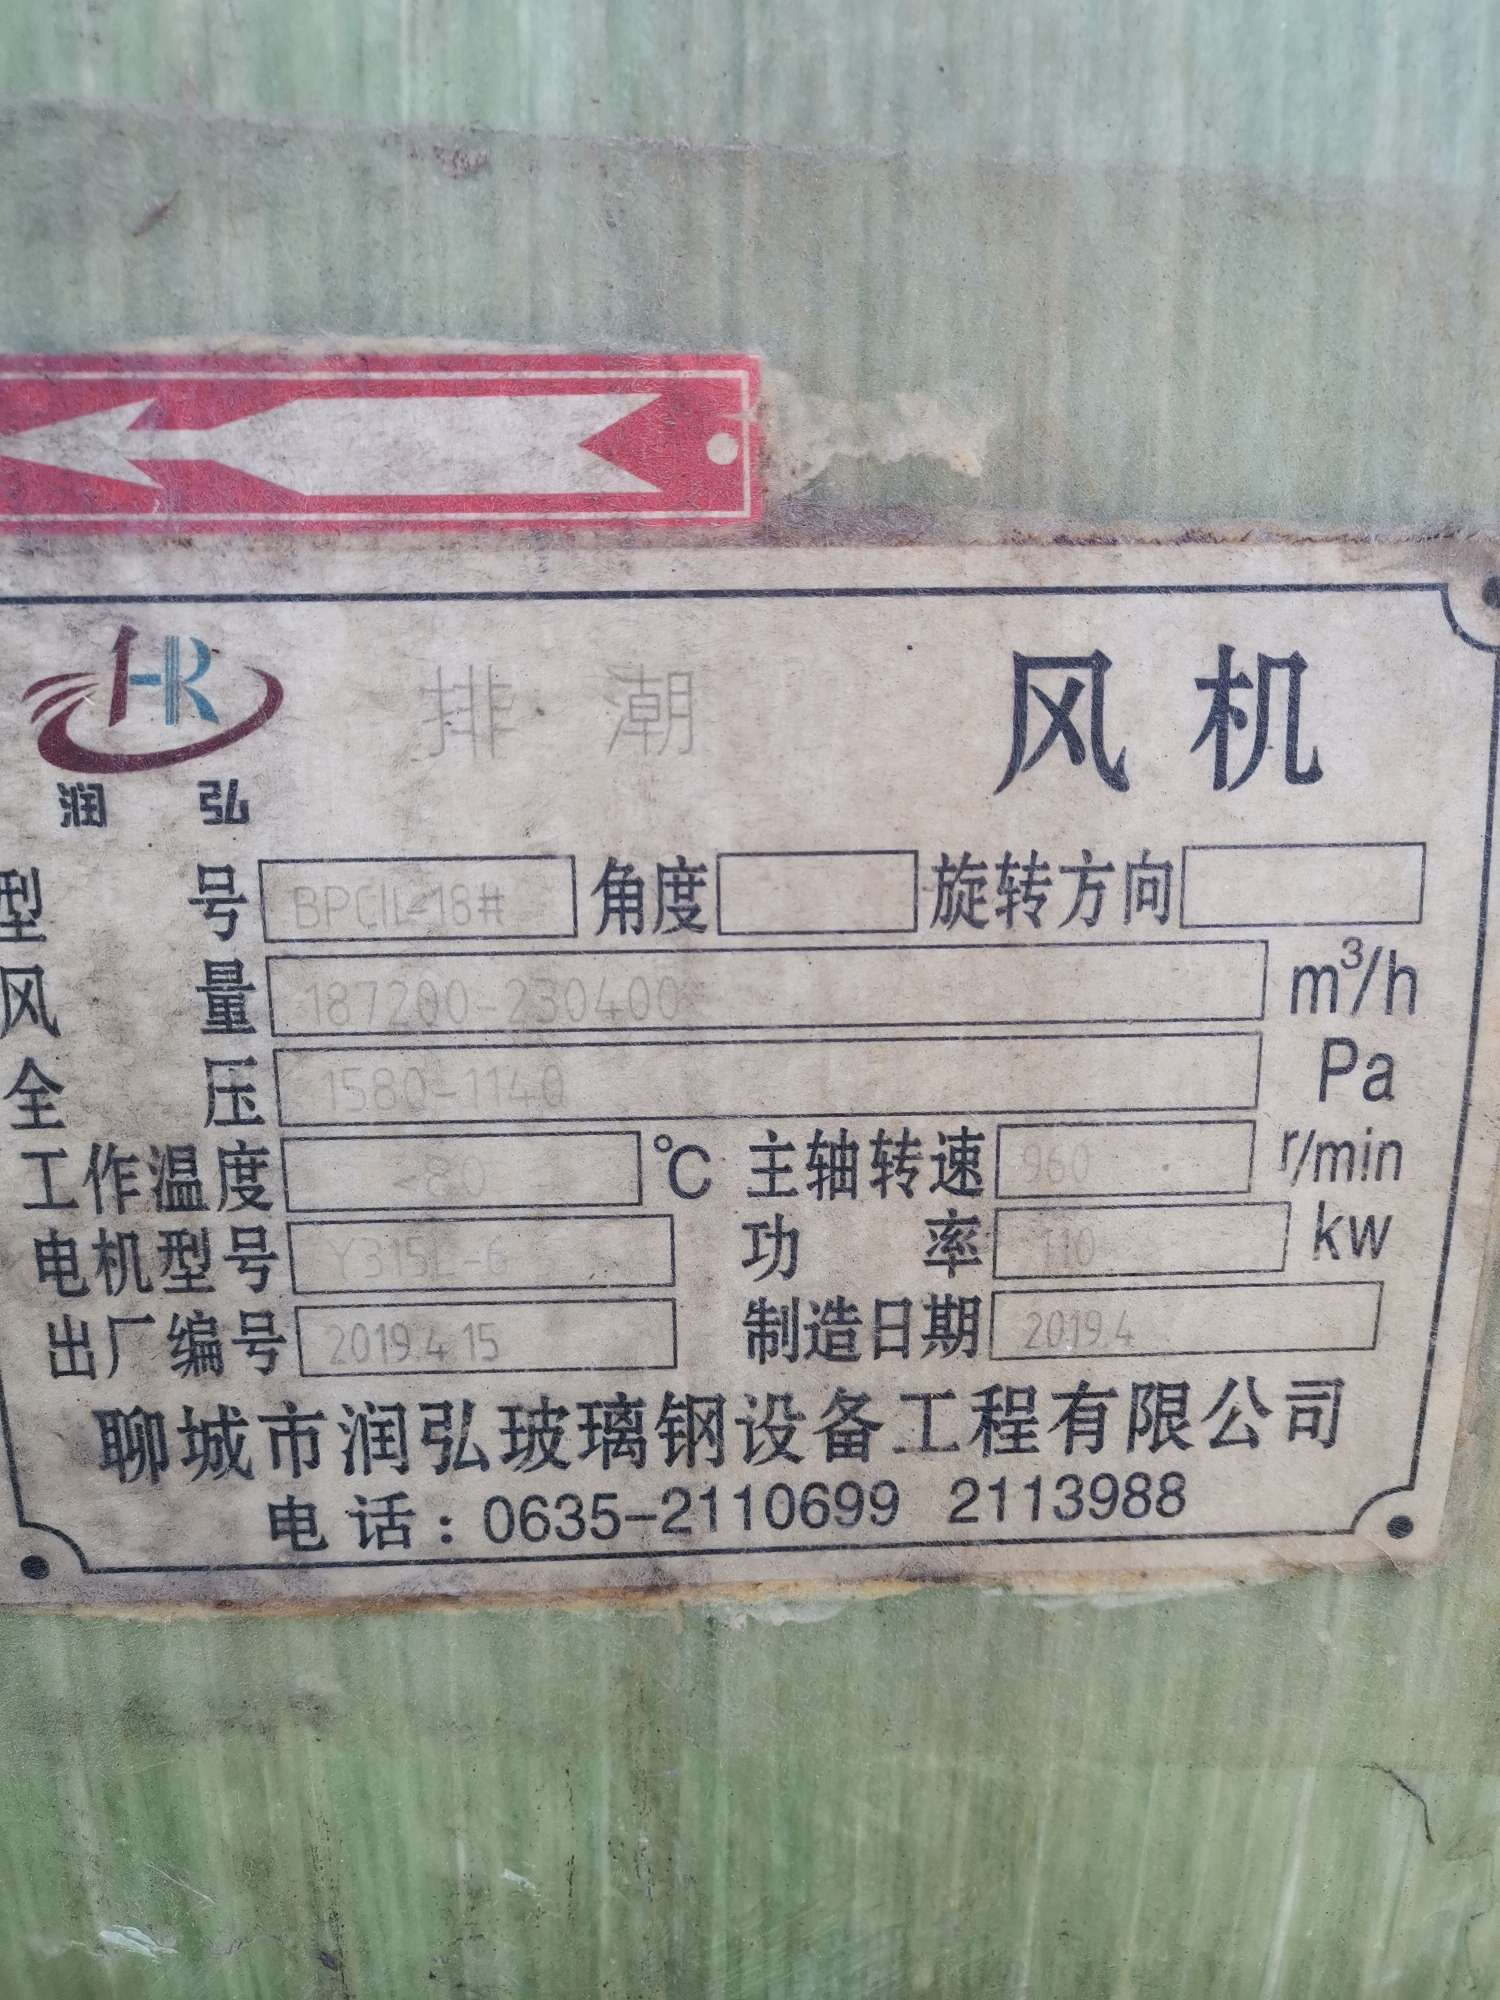 HR
润弘
排潮 风机
型号 BPCIL-18# 角度 旋转方向
风量 187200-230400 m³/h
全压 1580-1140 Pa
工作温度 <80 ℃ 主轴转速 960 r/min
电机型号 Y315L-6 功率 110 kw
出厂编号 2019.4.15 制造日期 2019.4
聊城市润弘玻璃钢设备工程有限公司
电话:0635-2110699 2113988